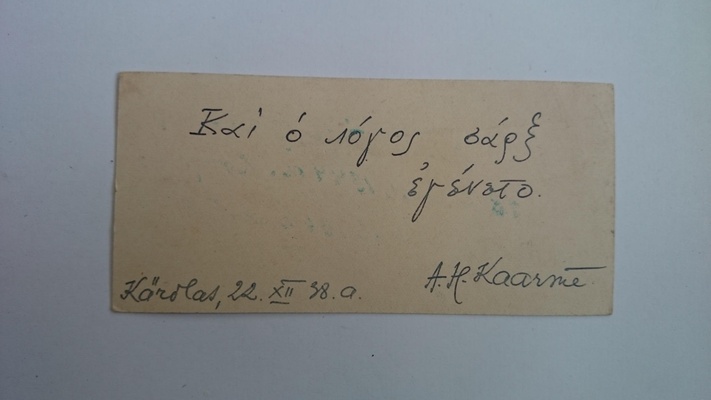 Καὶ ὁ λόγος σάρξ
ἐγένετο.
A.H. Kaarme
Kärdlas, 22. XII 38. a.